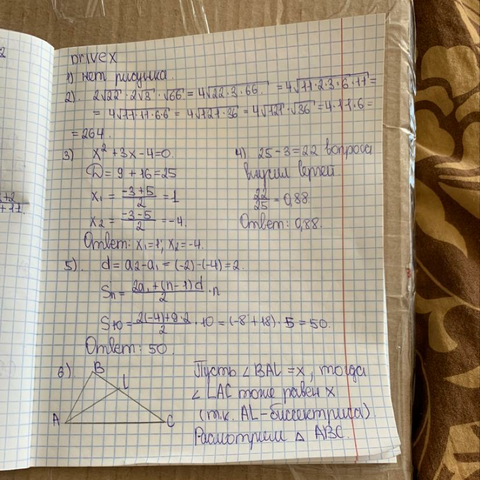 Drivex
1) нет рисунка
2). 2√22 · 2√3 · √66 = 4√22·3·66 = 4√11·2·3·6·11 =
= 4√11·11·6·6 = 4√121·36 = 4√121 · √36 = 4·11·6 =
= 264.
3) x² + 3x - 4 = 0
D = 9 + 16 = 25
x₁ = (-3+5)/2 = 1
x₂ = (-3-5)/2 = -4.
Ответ: x₁ = 1; x₂ = -4.
4) 25 - 3 = 22 вопроса
выучил Сергей
22/25 = 0,88
Ответ: 0,88.
5). d = a₂ - a₁ = (-2) - (-4) = 2
Sₙ = (2a₁ + (n-1)d)/2 · n
S₁₀ = (2(-4)+9·2)/2 · 10 = (-8 + 18) · 5 = 50.
Ответ: 50
6)
B
L
A
C
Пусть ∠BAL = x, тогда
∠LAC тоже равен x
(т.к. AL - биссектриса)
Рассмотрим △ ABC